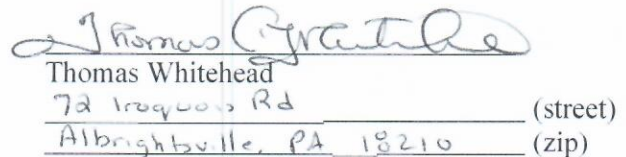 Thomas C. Whitehead
Thomas Whitehead
72 Iroquois Rd (street)
Albrightsville, PA 18210 (zip)